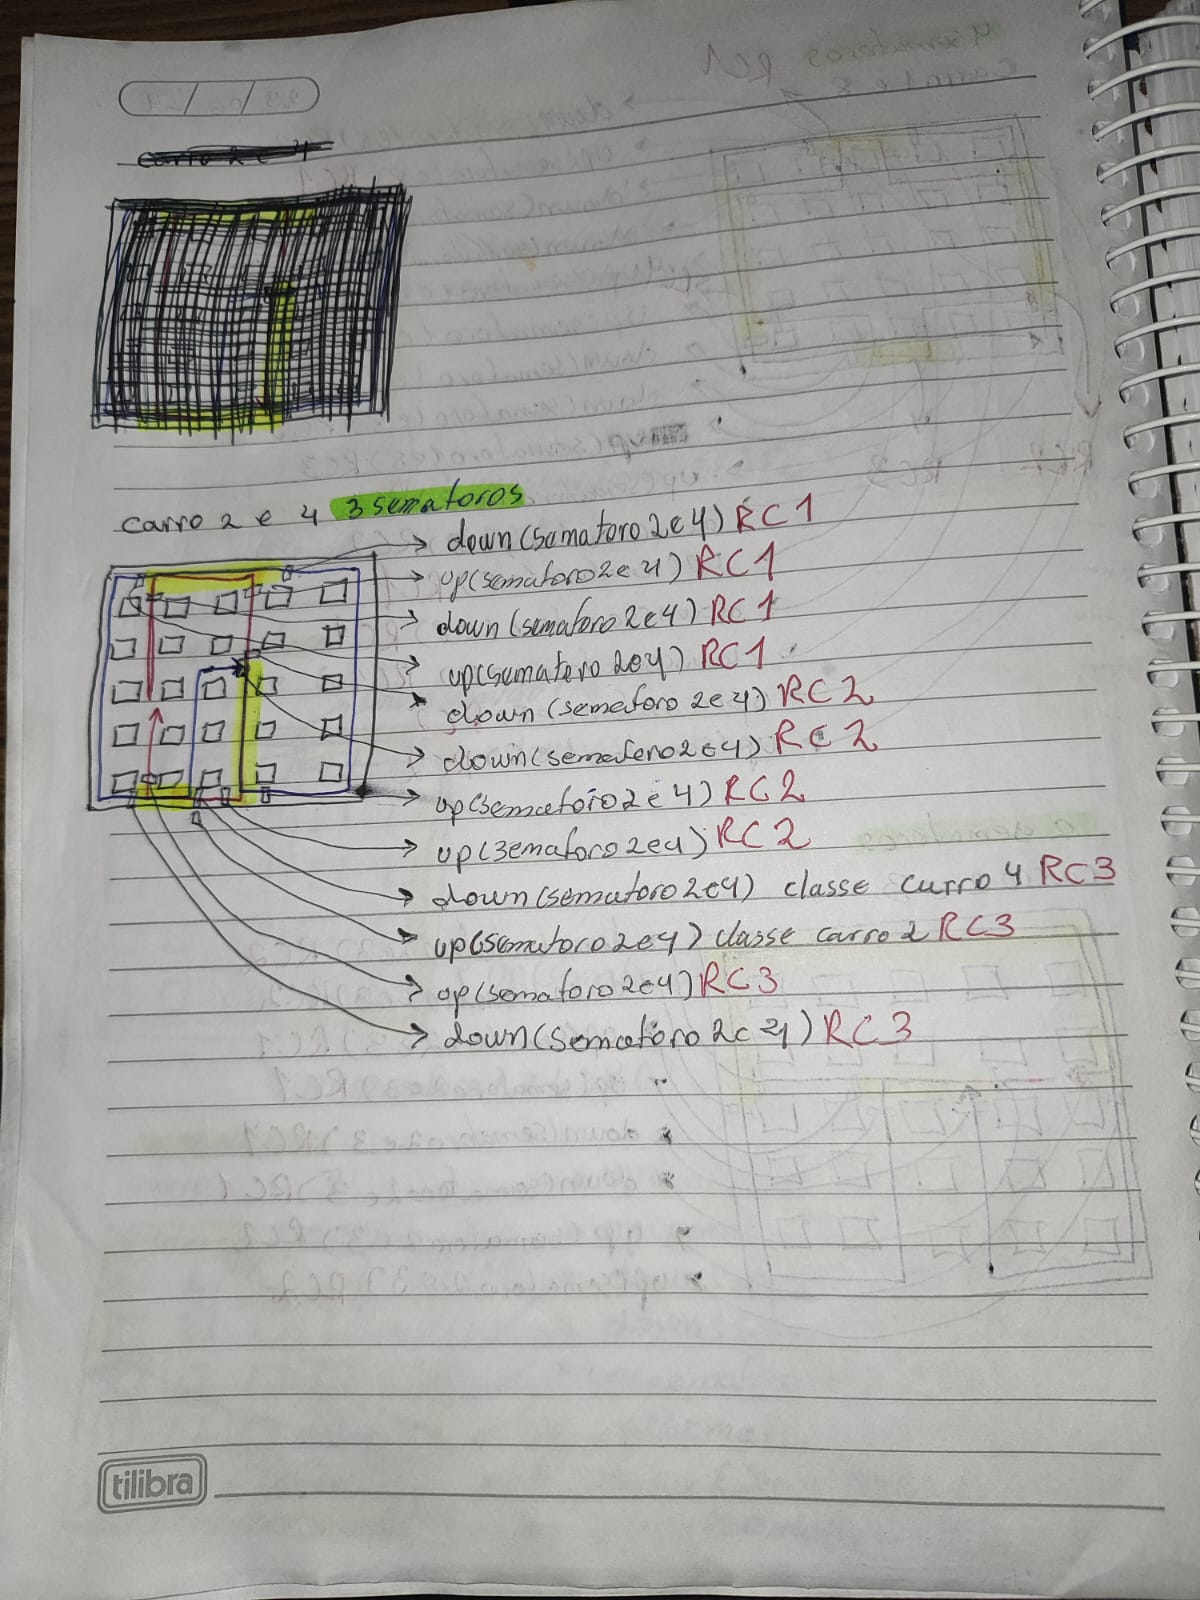 carro 2 e 4
carro 2 e 4 3 semaforos
down(samaforo 2e4) RC1
up(semaforo 2e4) RC1
down(semaforo 2e4) RC1
up(semafero 2e4) RC1
down (semaforo 2e4) RC2
down(semafero 2e4) RC2
up(semaforo 2e4) RC2
up(semaforo 2e4) RC2
down(semaforo 2e4) classe carro 4 RC3
up(semaforo 2e4) classe carro 2 RC3
up(semaforo 2e4) RC3
down(semaforo 2e4) RC3
tilibra